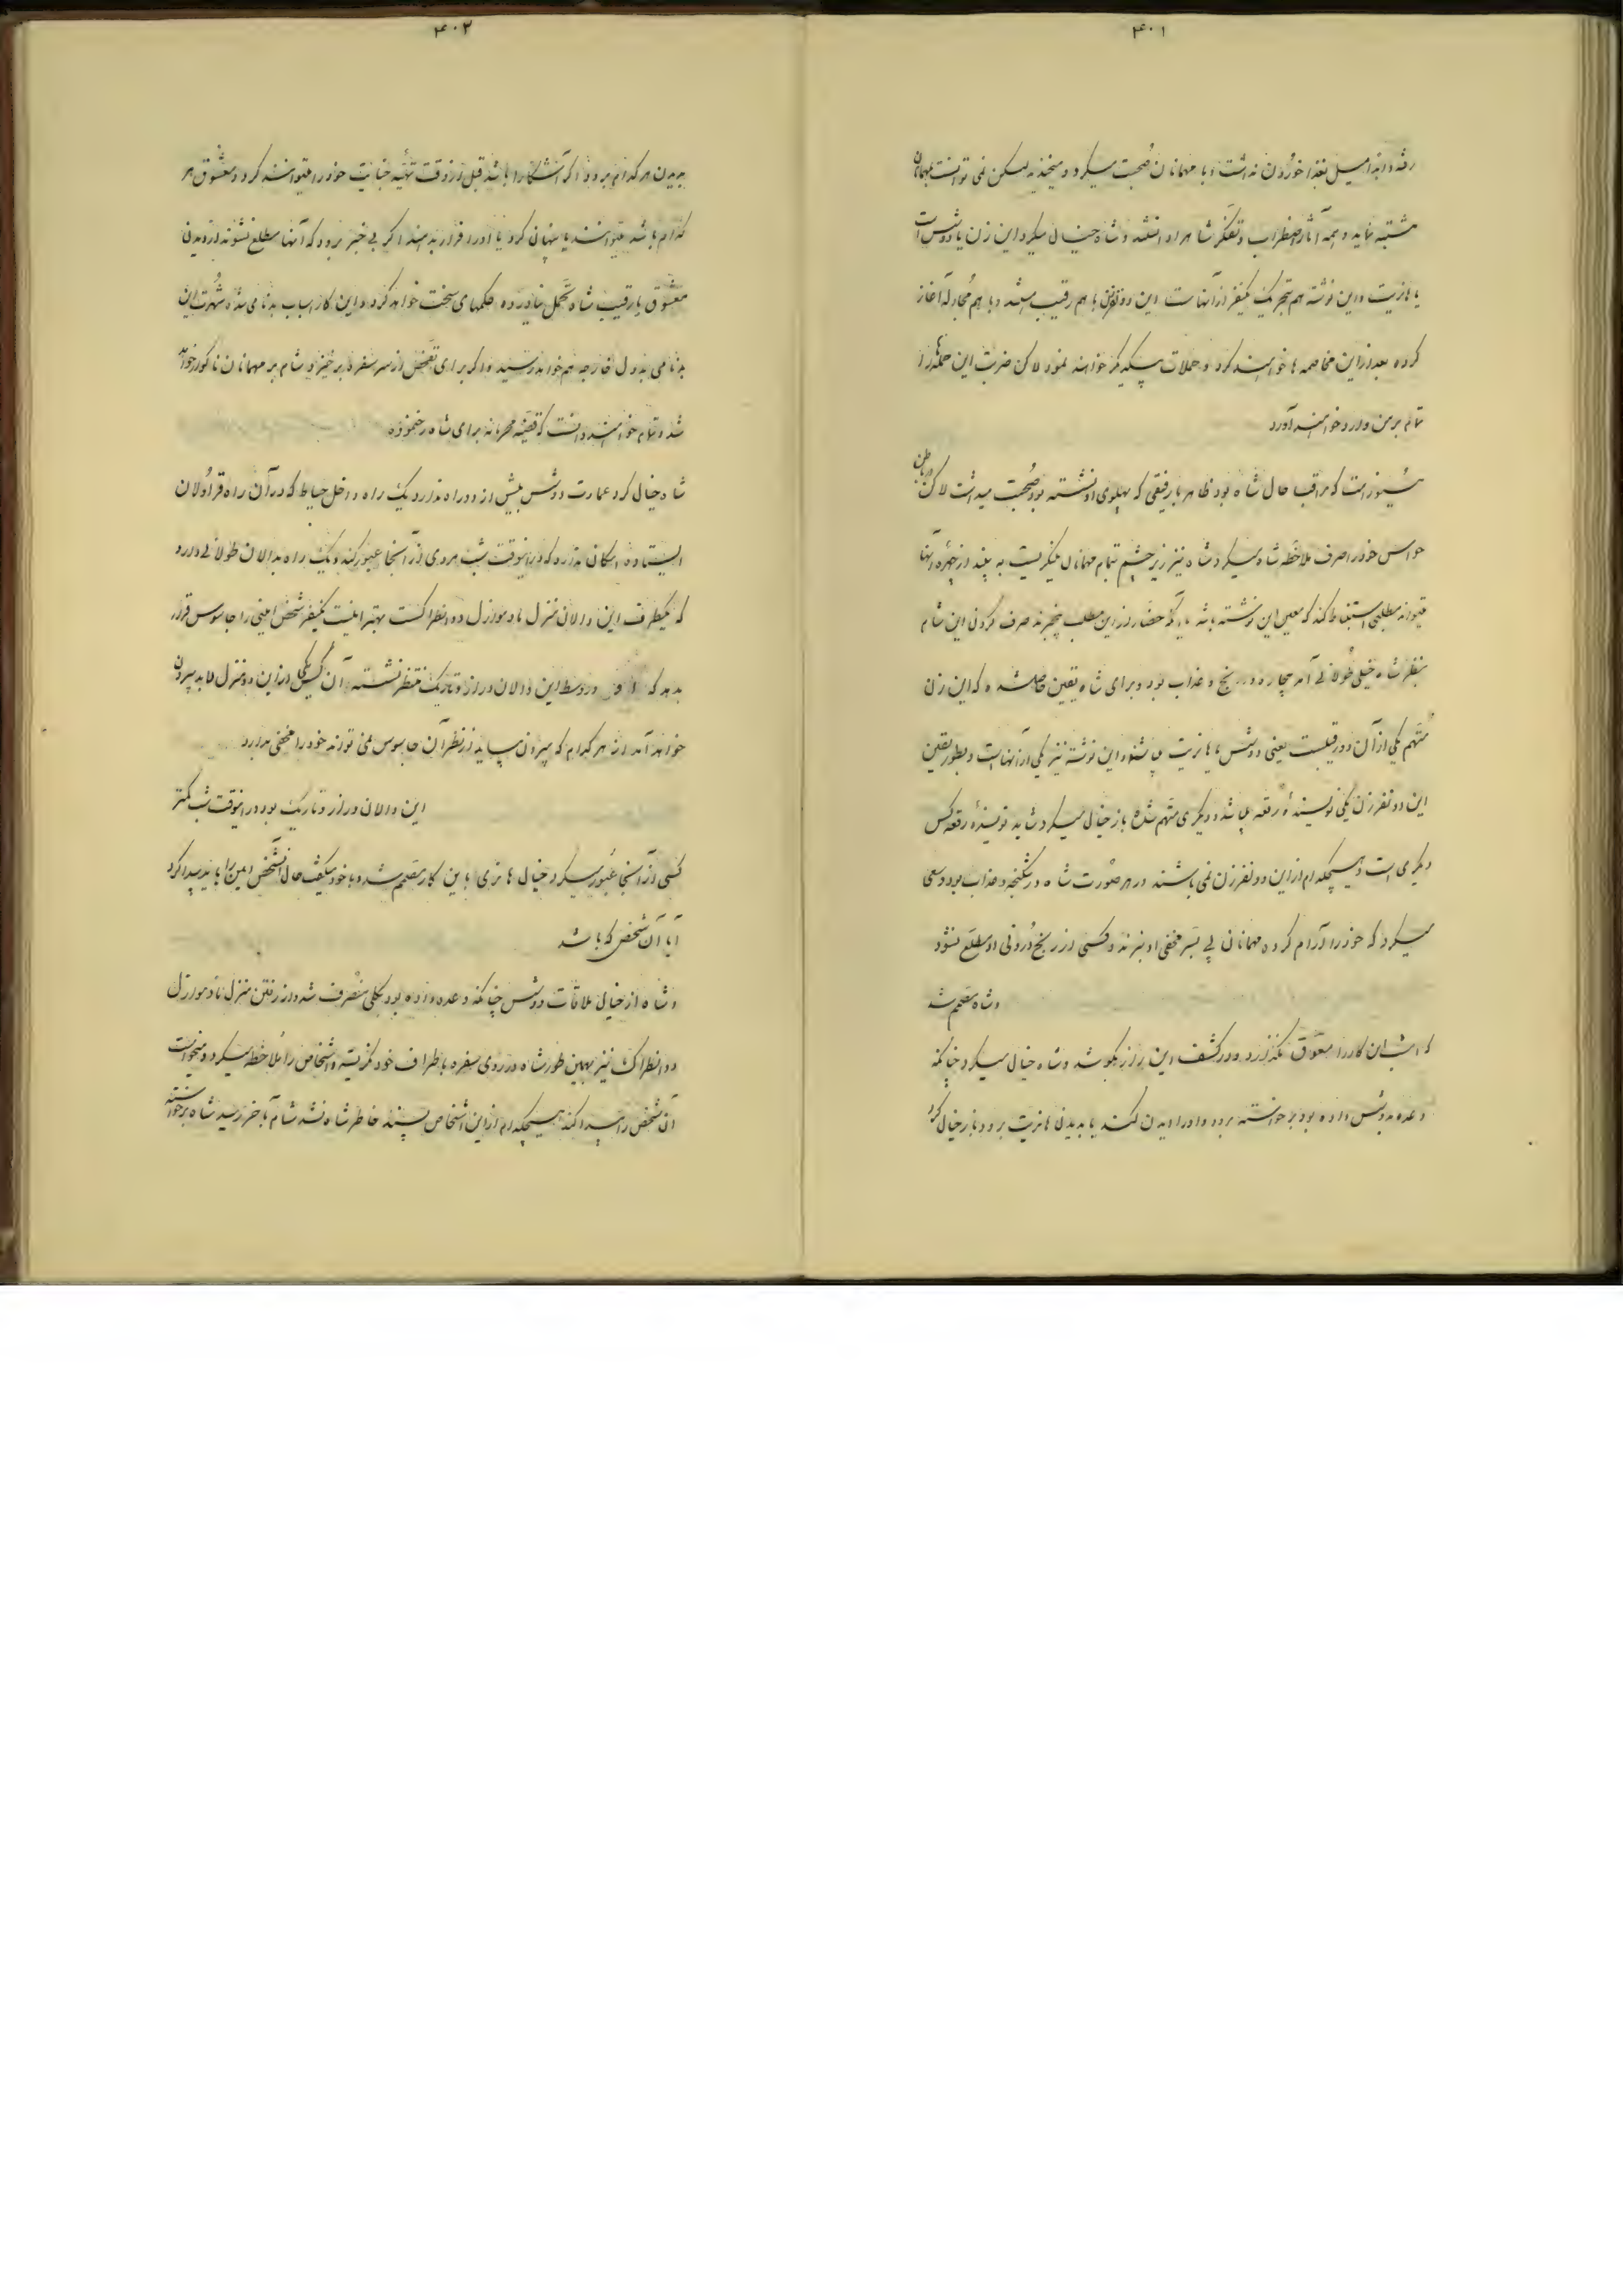 ۴۰۱
رفته و ابدا میل بغذا خوردن نداشت و با مهمانان صحبت میکرد و میخندید لیکن نمی توانست بمهمانان
مشتبه نماید و همه آثار اضطراب و تفکر شاه را دانستند و شاه خیال میکرد این زن یا دوشس است
یا هانریت و این نوشته هم بتحریک یکنفر از آنهاست این دو نفر با هم رقیب هستند و با هم مجادله آغاز
کرده بعد از این مخاصمه ها خواهند کرد و حملات بیکدیگر خواهند نمود لاکن ضربت این حمله ها را
تمام بر من وارد خواهند آورد
که مراقب حال شاه بود ظاهر با رفیقی که پهلوی او نشسته بود صحبت میداشت لاکن در باطن
حواس خود را صرف ملاحظه شاه میکرد شاه نیز زیر چشم تمام مهمانان مینگریست به بیند از چهره آنها
میتواند مطلبی استنباط کند که معین این نوشته باشد یا آنکه حضار از این مطلب بیخبرند صرف کردن این شام
بنظر شاه خیلی طولانی آمد بیچاره در رنج و عذاب بود و برای شاه یقین حاصل شده که این زن
متهم یکی از آن دو رقیب است یعنی دوشس یا هانریت می باشد و این نوشته نیز یکی از آنهاست و بطور یقین
این دو نفر زن یکی نویسنده رقعه می باشد و دیگری متهم شده باز خیال میکرد شاید نویسنده رقعه کس
دیگری است و هیچکدام از این دو نفر زن نمی باشند در هر صورت شاه در شکنجه و عذاب بود و سعی
میکرد که خود را آرام کرده مهمانان پی بسر مخفی او نبرند و کسی از رنج درونی او مطلع نشود
و شاه مصمم شد
که ایشان کار را معوق نگذارد و در کشف این راز بکوشد و شاه خیال میکرد چنانکه
وعده بدوشس داده بود برخواسته برود و او را دیدن کند یا بدیدن هانریت برود باز خیال کرد
۴۰۲
بدیدن هر کدام برود اگر آشکارا باشد قبل از وقت تهیه خیانت خود را میتوانند کرد و معشوق هر
کدام باشد میتوانند یا پنهانی کرد یا او را فرار بدهند اگر بی خبر برود که آنها مطلع نشوند از دیدن
معشوق یا رقیب شاه تحمل نیاورده حکمهای سخت خواهد کرد و این کار اسباب بدنامی شده شهرت این
بدنامی بدول خارجه هم خواهد رسید و اگر برای تفحص از سر سفره برخیزد شام بر مهمانان ناگوار خواهد
شد و تمام خواهند دانست که قضیه محرمانه برای شاه رخ نموده
شاه خیال کرد عمارت دوشس بیش از دو راه ندارد یک راه داخل حیاط که در آن راه قراولان
ایستاده امکان ندارد که در این وقت شب مردی از آنجا عبور کند و یک راه بدالان طولانی دارد
که یکطرف این دالان منزل مادموازل دو انطراکت بهتر اینست یکنفر شخص امینی را جاسوس قرار
بدهد که در وسط این دالان دراز و تاریک منتظر نشسته آن کس یکی از این دو منزل لابد بیرون
خواهد آمد از هر کدام که بیرون بیاید از نظر آن جاسوس نمی تواند خود را مخفی بدارد
این دالان دراز و تاریک بود در این وقت شب کمتر
کسی از آنجا عبور میکرد خیال هانری باین کار مصمم شده و با خود میگفت حال آنشخص امین را باید پیدا کرد
آیا آن شخص که باشد
و شاه از خیال ملاقات دوشس چنانکه وعده داده بود بکلی منصرف شد و از رفتن منزل مادموازل
دو انطراک نیز بهمین طور شاه در روی سفره باطراف خود نگریسته و اشخاص را ملاحظه میکرد و میخواست
آن شخص را پیدا کند هیچکدام از این اشخاص پسند خاطر شاه نشد شام بآخر رسید شاه برخواسته